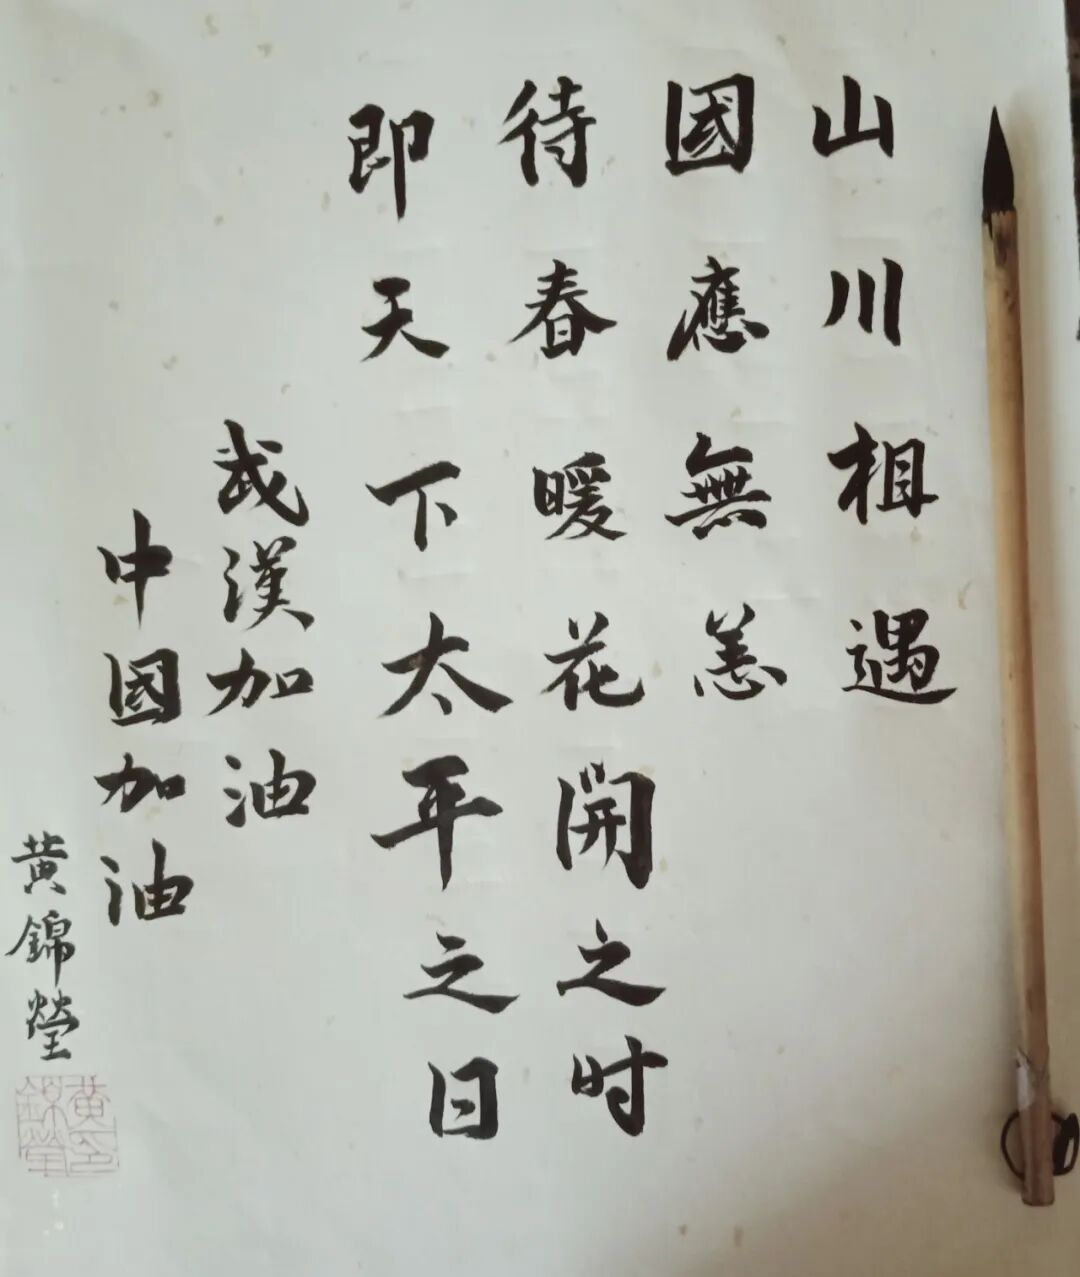 山川相遇
國應無恙
待春暖花開之时
即天下太平之日
武漢加油
中國加油
黄錦瑩
黄印
錦瑩